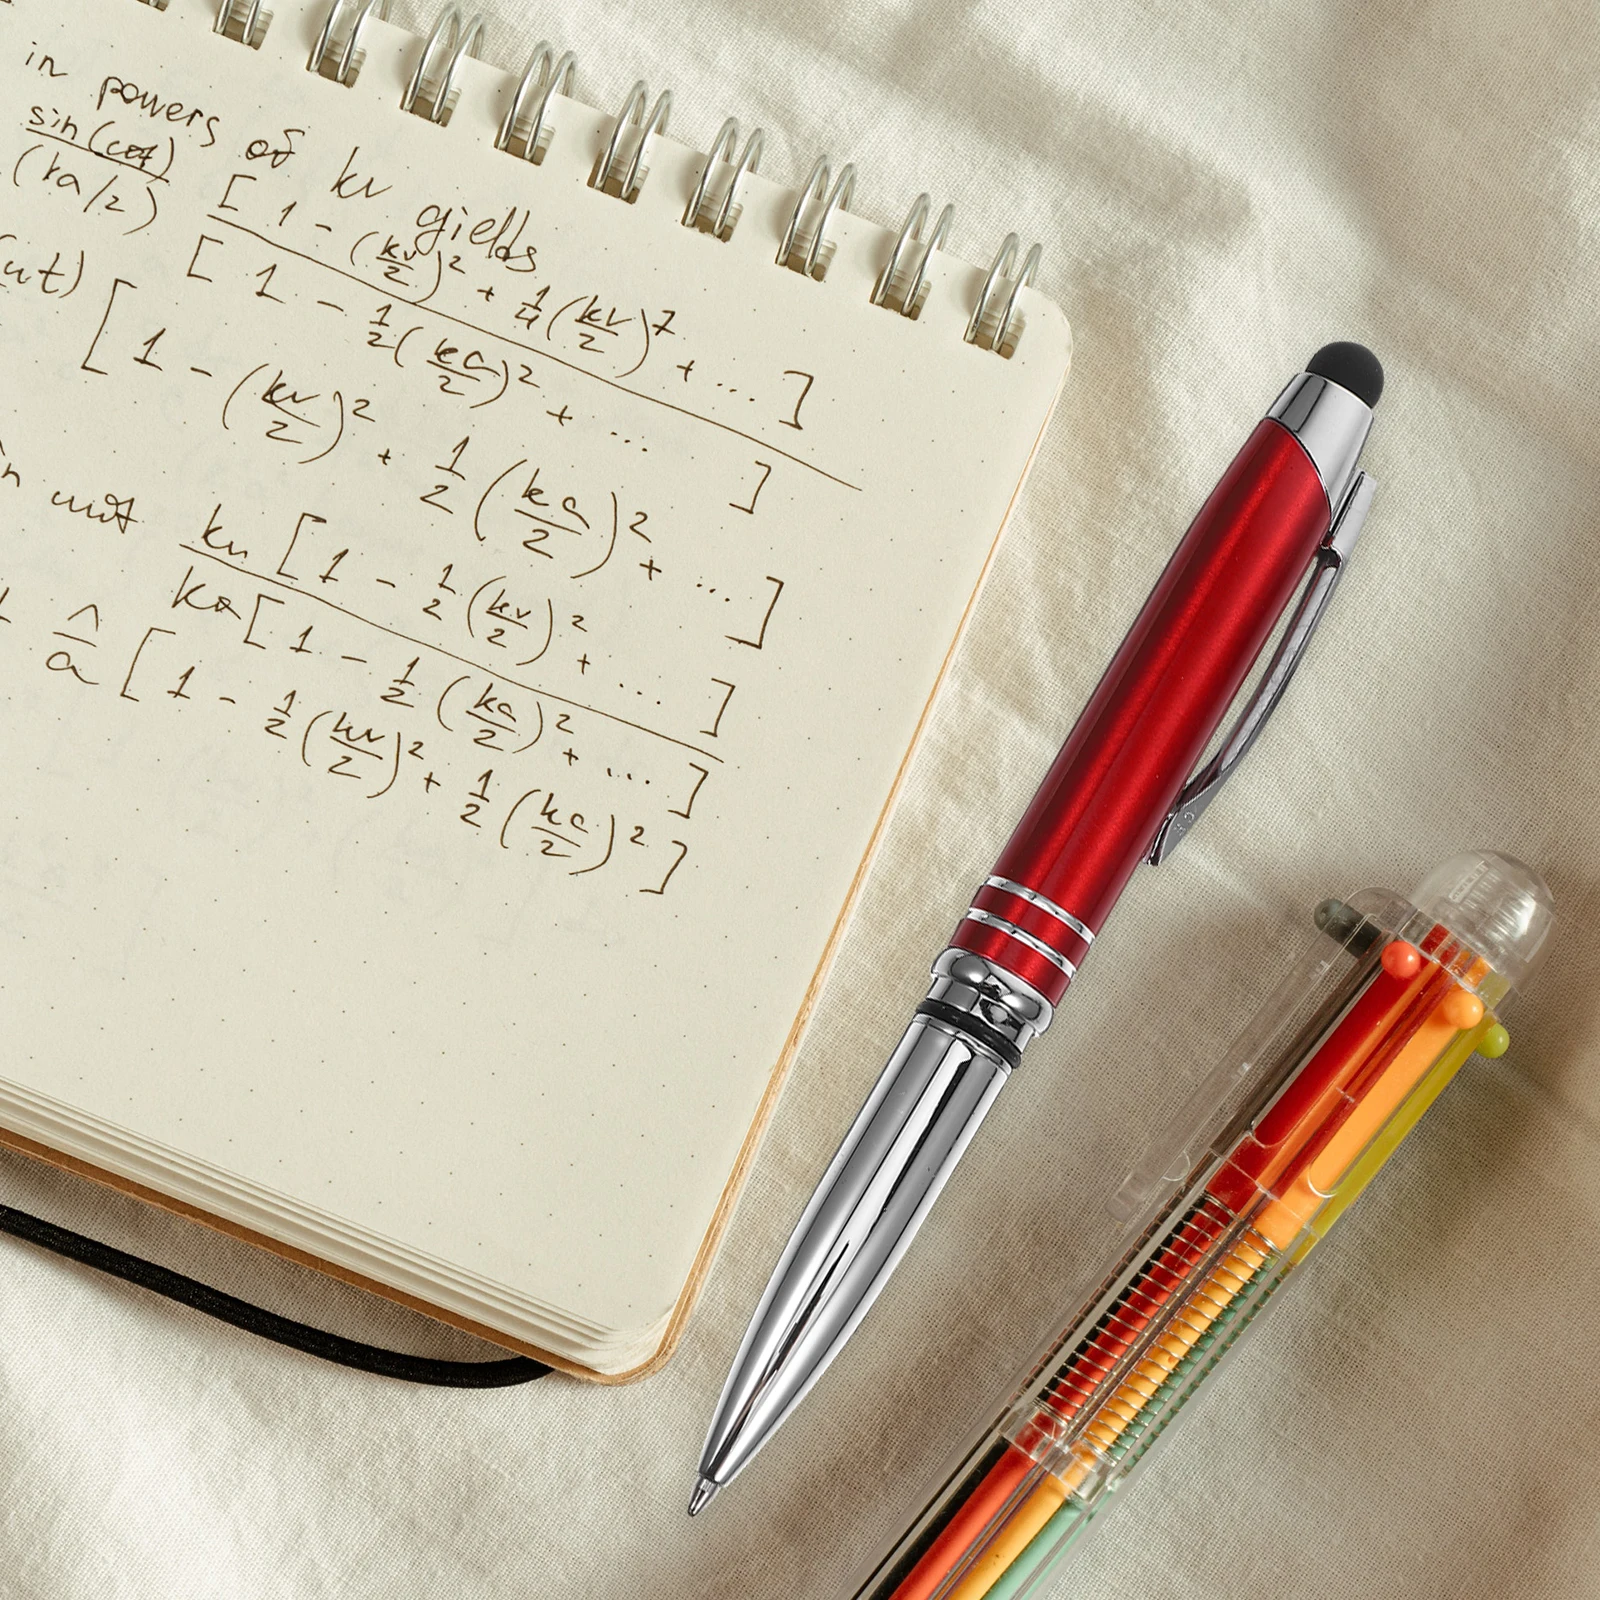 in powers of kv gields
sin(cot) [1 - (kv/2)² + 1/4(kv/2)⁷ + ...]
(ka/2) [1 - 1/2(ka/2)² + ... ]
ut) [1 - (kv/2)² + 1/2(ka/2)² + ...]
kv [1 - 1/2(kv/2)² + ... ]
ka [1 - 1/2(ka/2)² + ... ]
^/a [1 - 1/2(kv/2)² + 1/2(ka/2)²]